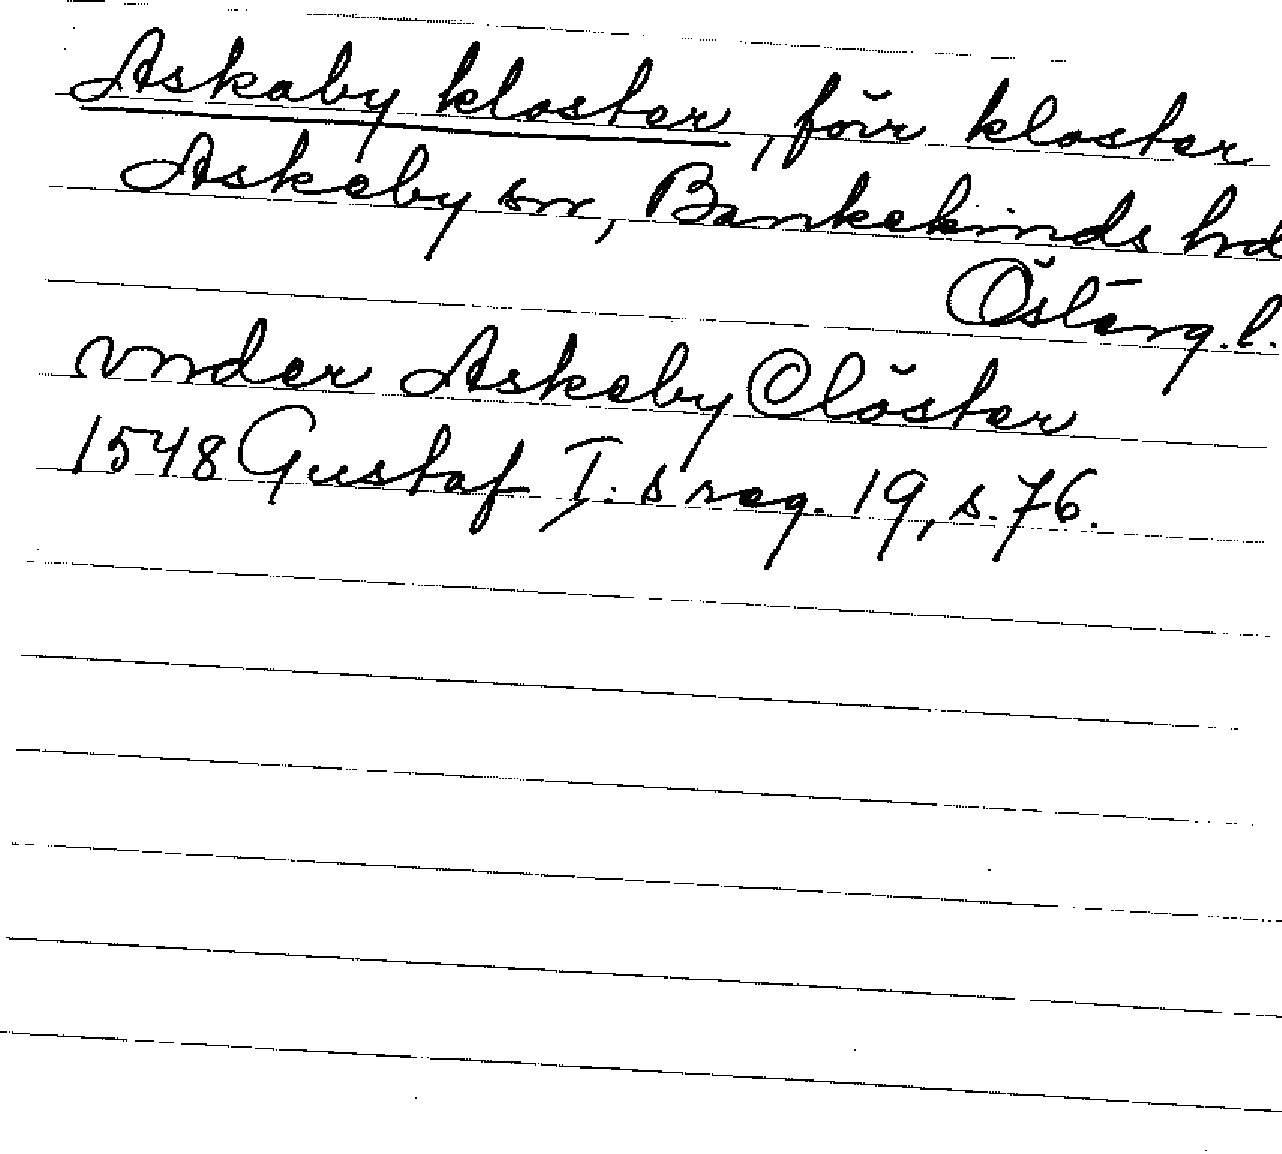 Askeby kloster, förr kloster
Askeby sn, Bankekinds hd
Österg. l.
vnder Askeby Clöster
1548 Gustaf I:s reg. 19, s. 76.